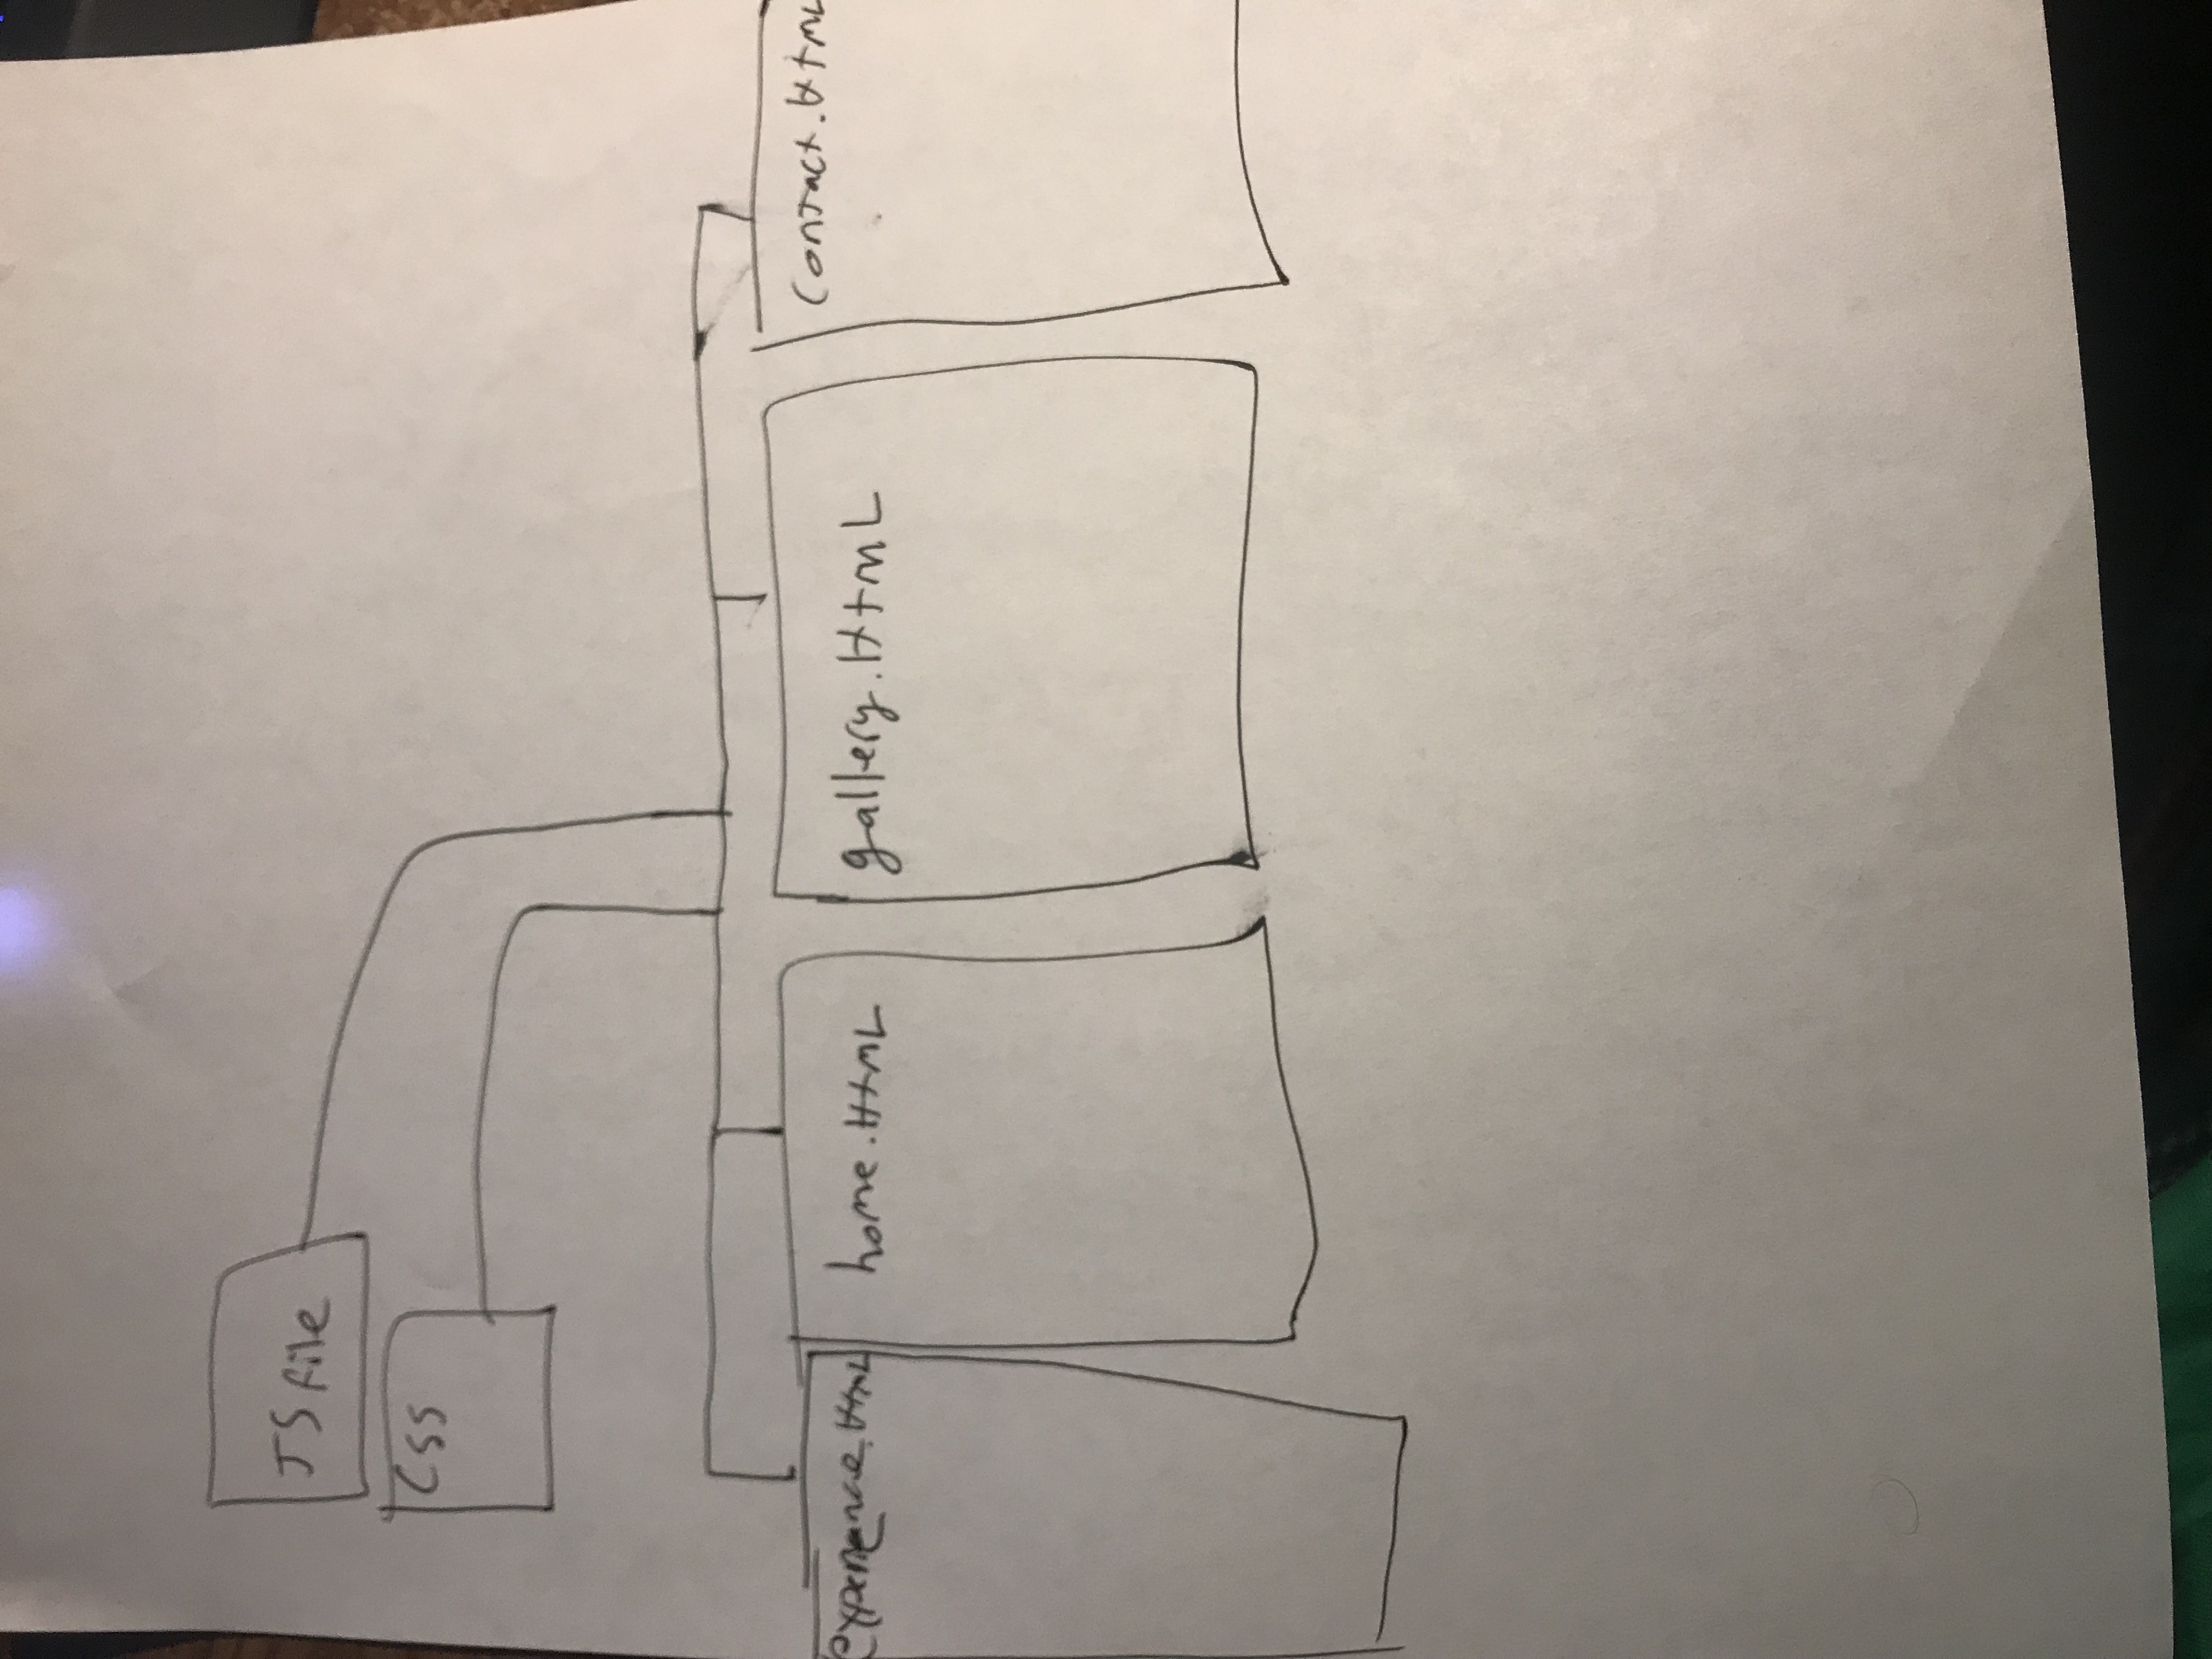 JS file
CSS
experience.HtmL
home.HtmL
gallery.HtmL
Contact.HtmL